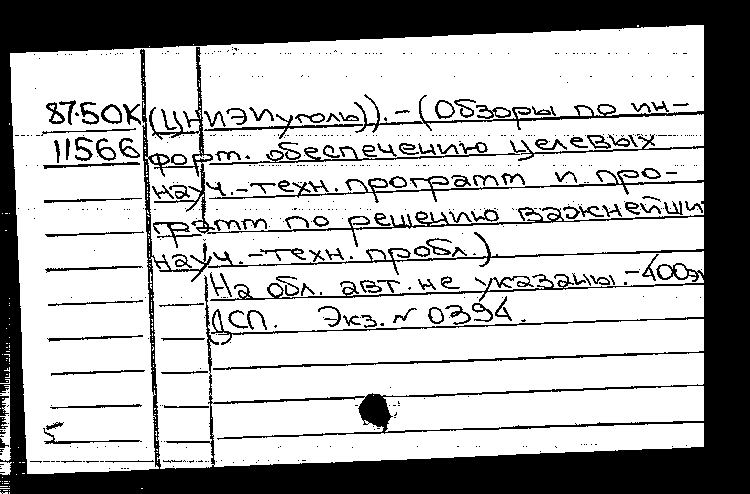 87-5OK (ЦНИЭИуголь)). – (Обзоры по ин-
11566 форт. обеспечению целевых
науч.-техн. программ и про-
грамм по решению важнейши
науч.-техн. пробл.).
На обл. авт. не указаны. – 400 эк
ДСП. Экз. № 0394.
5